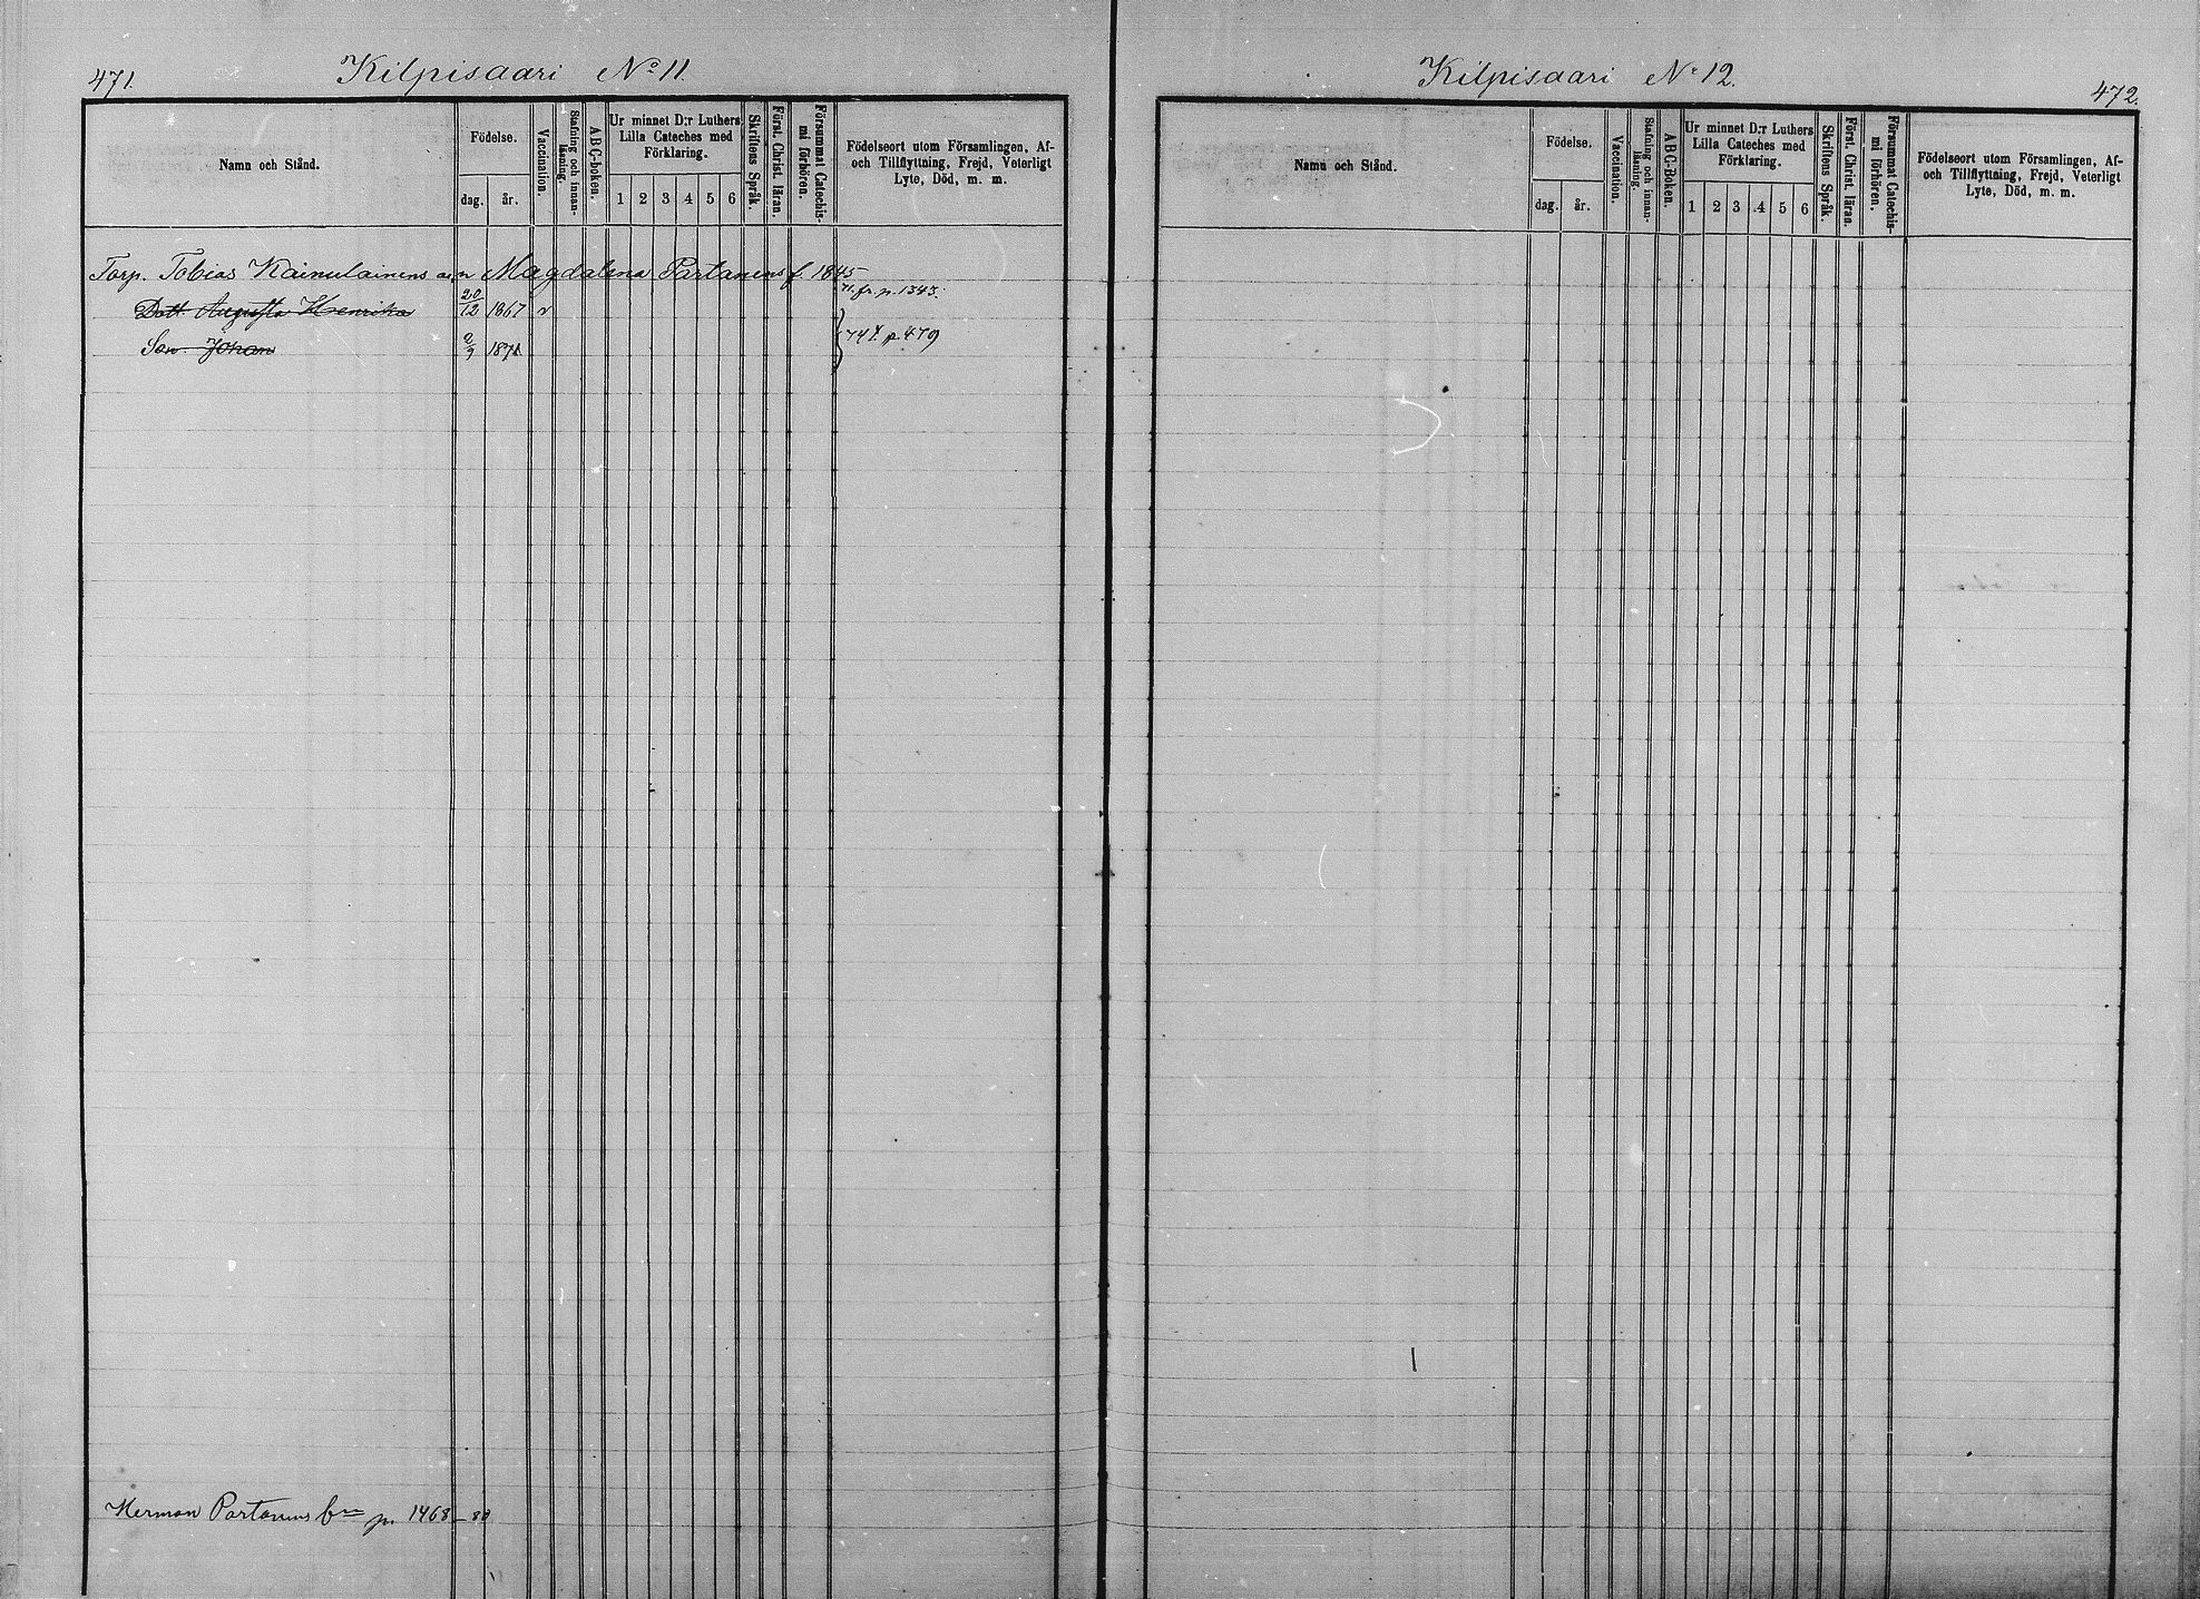 471.
Kilpisaari No 11.
Namn och Stånd.
Födelse.
dag.
år.
Vaccination.
Stafning och innan-
läsning.
ABC-boken.
Ur minnet D:r Luthers
Lilla Cateches med
Förklaring.
1 2 3 4 5 6
Skriftens Språk.
Först. Christ. läran.
Försummat Catechis-
mi förhören.
Födelseort utom Församlingen, Af-
och Tillflyttning, Frejd, Veterligt
Lyte, Död, m. m.
Torp. Tobias Kainulainens Magdalena Partanens f. 1845
71. fr. p. 1343.
Dott. Augusta Henrika 20/12 1867 v
Son. Johan 2/9 1871
74 t. p. 479
Herman Partanens p. 1468
Kilpisaari No 12.
472.
Namn och Stånd.
Födelse.
dag.
år.
Vaccination.
Stafning och innan-
läsning.
ABC-Boken.
Ur minnet D:r Luthers
Lilla Cateches med
Förklaring.
1 2 3 4 5 6
Skriftens Språk.
Först. Christ. läran.
Försummat Catechis-
mi förhören.
Födelseort utom Församlingen, Af-
och Tillflyttning, Frejd, Veterligt
Lyte, Död, m. m.